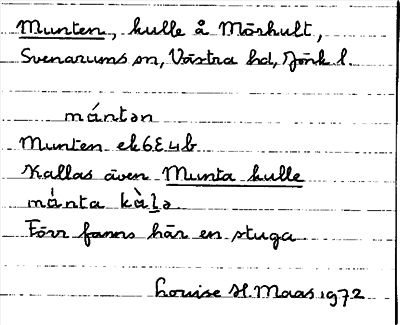 Munten, kulle å Mörhult,
Svenarums sn, Västra hd, Jönk l.
mántən
Munten ek 6E4b
Kallas även Munta kulle
mánta kàlə
Förr fanns här en stuga
Louise H. Maas 1972